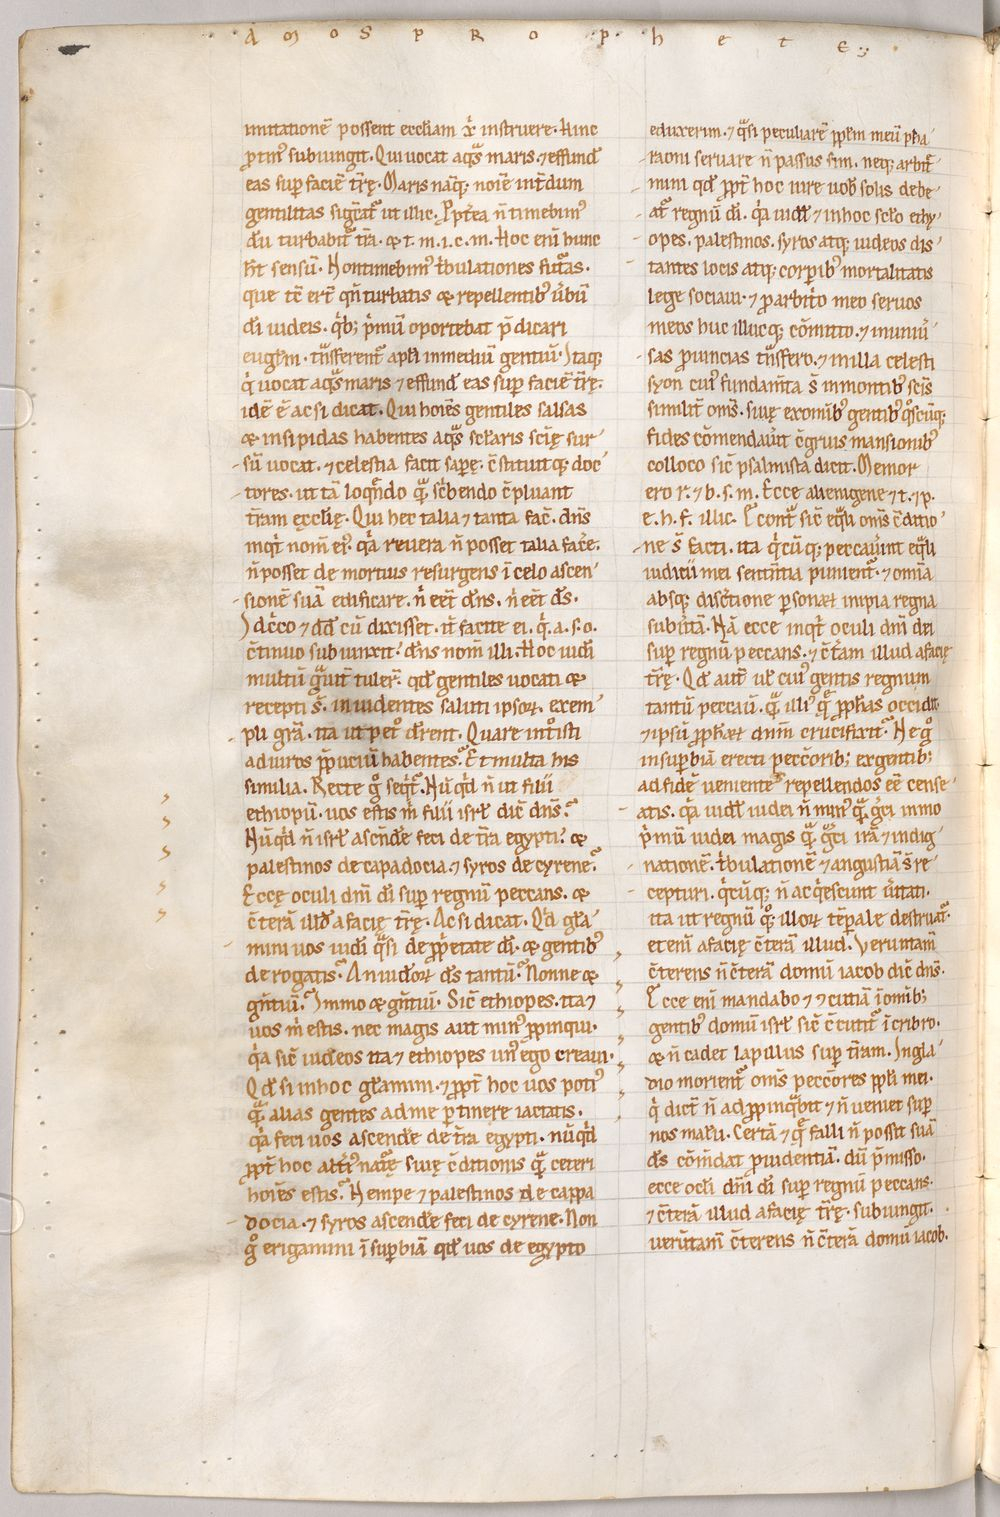 AMOS PROPHETE
imitationē possent eccl̄iam xp̄i instruere. Hinc
ꝓtin᷒ subiungit. Qui uocat aq̄s maris. ⁊ effund̄
eas sup̄ faciē t̄rę. Maris nāq; noīe int̄dum
gentilitas sigc̄at᷑ ut illic. Ꝓpt̄ea n̄ timebim᷒
dū turbabit᷑ t̄ra. & t. m. i. c. m. Hoc eni hunc
h̄t sensū. Non timebim᷒ t̄bulationes fut᷑as.
que tc̄ ert̄ qn̄ turbatis & repellentib᷒ ūbū
dī iudeis. qͥb; p̄mū oportebat p̄dicari
eugl̄m. tn̄sferent᷑ apl̄i in mediū gentiū. Itaq;
qͥ uocat aq̄s maris ⁊ effund̄ eas sup̄ faciē t̄rę.
idē ē ac si dicat. Qui hoīes gentiles salsas
& insipidas habentes aq̄s sc̄laris scīę sur
sū uocat. ⁊ celestia facit sap̄ę. c̄stituitq; doc
tores. ut tā loq̄ndo q̄ sc̄bendo c̄pluant
t̄ram ęccl̄ię. Qui hec talia ⁊ tanta fac̄. dn̄s
inqͥt nom̄ ei᷒. qͣa reuera n̄ posset talia fac̄e.
n̄ posset de mortuis resurgens ī celo ascen
sionē suā edificare. n̄ eēt dn̄s. n̄ eēt ds̄.
Idc̄co ⁊ dd̄ cū dixisset. it̄ facite ei. qͥ. a. s. o.
c̄tinuo subiunxit. dn̄s nom̄ illi. Hoc iudī
multū gͣuit̄ tuler̄. qd̄ gentiles uocati &
recepti s̄. inuidentes saluti ipsoꝝ. exem
pli grā. ita ut pet᷒ dc̄rent. Quare int̄isti
ad uiros p̄puciū habentes. Et multa his
similia. Recte gͦ seqͥt᷑. Nūqͥd n̄ ut filii
ethiopū. uos estis m̄ filii isrl̄ dic̄ dn̄s.
Nūqͥd n̄ isrl̄ ascend̄e feci de t̄ra egypti. &
palestinos de capadocia. ⁊ syros de cyrene.
Eccę oculi dnī dī sup̄ regnū peccans. &
c̄terā illd̄ a facię t̄rę. Ac si dicat. Qͥd gl̄a
mini uos iudī qͣsi de ꝓp̄etate dī. & gentib᷒
derogatis. An iud̄oꝝ ds̄ tantū. Nonne &
gn̄tiū. Immo & gn̄tiū. Sic̄ ethiopes. ita ⁊
uos m̄ estis. nec magis aut min᷒ ꝓpinqui.
qͣa sic̄ iudeos ita ⁊ ethiopes un᷒ ego creaui.
Qd̄ si in hoc gl̄amini. ⁊ ꝓpt̄ hoc uos poti᷒
qͣ alias gentes ad me ꝑtinere iactatis.
qͣa feci uos ascend̄e de t̄ra egypti. nūqͥd
ꝓpt̄ hoc alt̄i᷒ nat᷑ę siuę c̄ditionis qͣ ceteri
hoīes estis. Nempe ⁊ palestinos de cappa
docia. ⁊ syros ascend̄e feci de cyrene. Non
gͦ erigamini ī sup̄biā qd̄ uos de egypto
eduxerim. ⁊ qͣsi peculiarē ppl̄m meū pha
raoni seruare n̄ passus sim. neq; arbit̄
mini qd̄ ꝓpt̄ hoc iure uob̄ solis debe
at᷑ regnū dī. qͣa iudī ⁊ in hoc scl̄o ethy
opes. palestinos. syros atq; iudeos dis
tantes locis atq; corꝑib᷒ mortalitatis
lege sociaui. ⁊ ꝓ arbit̄o meo seruos
meos huc illucq; c̄mitto. ⁊ in uniū
sas ꝓuincias tn̄sfero. ⁊ in illa celesti
syon cui᷒ fundam̄ta s̄ in montib᷒ scīs
similit̄ om̄s. siuę ex omīb᷒ gentib᷒ qͦscūq;
fides cōmendauīt c̄gruis mansionib᷒
colloco sic̄ psalmista dicit. Memor
ero r. ⁊ b. s. m. Ecce alienigene ⁊ t. ⁊ p.
e. h. f. illic. E contͣ sic̄ eqͣli om̄s c̄ditio
ne s̄ facti. ita qͥcūq; peccauīnt eqͣli
iudicii mei sentn̄tia punient᷑. ⁊ omīa
absq; disc̄tione ꝑsonaꝝ impia regna
subūtā. Nā ecce inqͥt oculi dnī dei
sup̄ regnū peccans. ⁊ c̄t̄am illud a facię
t̄rę. Qd̄ aut̄ ul̄ cui᷒ gentis regnum
tantū peccauī. qͣ illi᷒ qͣ ꝓphas occidit.
⁊ ipsū ꝓphaꝝ dn̄m crucifixit. Ne gͦ
in sup̄biā erecti pecc̄orib; exgentib;
ad fidē uenientes repellendos eē cense
atis. qͣa iudī iudei n̄ min᷒ qͣ gͤci immo
p̄mū iudei magis qͣ gͤci irā ⁊ indig
nationē. t̄bulationē ⁊ angustiā s̄ re
cepturi. qͥcūq; n̄ acqͥescunt ūitati.
ita ut regnū qͦ; illoꝝ tēꝑale destruat᷑.
et enī a facię c̄terā illud. Veruntam̄
c̄terens n̄ c̄terā domū iacob dic̄ dn̄s.
Ecce enī mandabo ⁊ ⁊cutiā ī omīb;
gentib᷒ domū isrl̄ sic̄ c̄cutit᷑ ī cribro.
& n̄ cadet lapillus sup̄ t̄ram. In gla
dio morient᷑ om̄s pecc̄ores ppl̄i mei.
qͥ dic̄t n̄ adꝓpinqͣbit ⁊ n̄ ueniet sup̄
nos malū. Certā ⁊ qͣ falli n̄ possit suā
ds̄ cōm̄dat ꝓuidentiā. dū p̄misso.
ecce ocl̄i dnī dī sup̄ regnū peccans.
⁊ c̄terā illud a facię t̄rę. subiungit.
uerūtam̄ c̄terens n̄ c̄terā domū iacob.